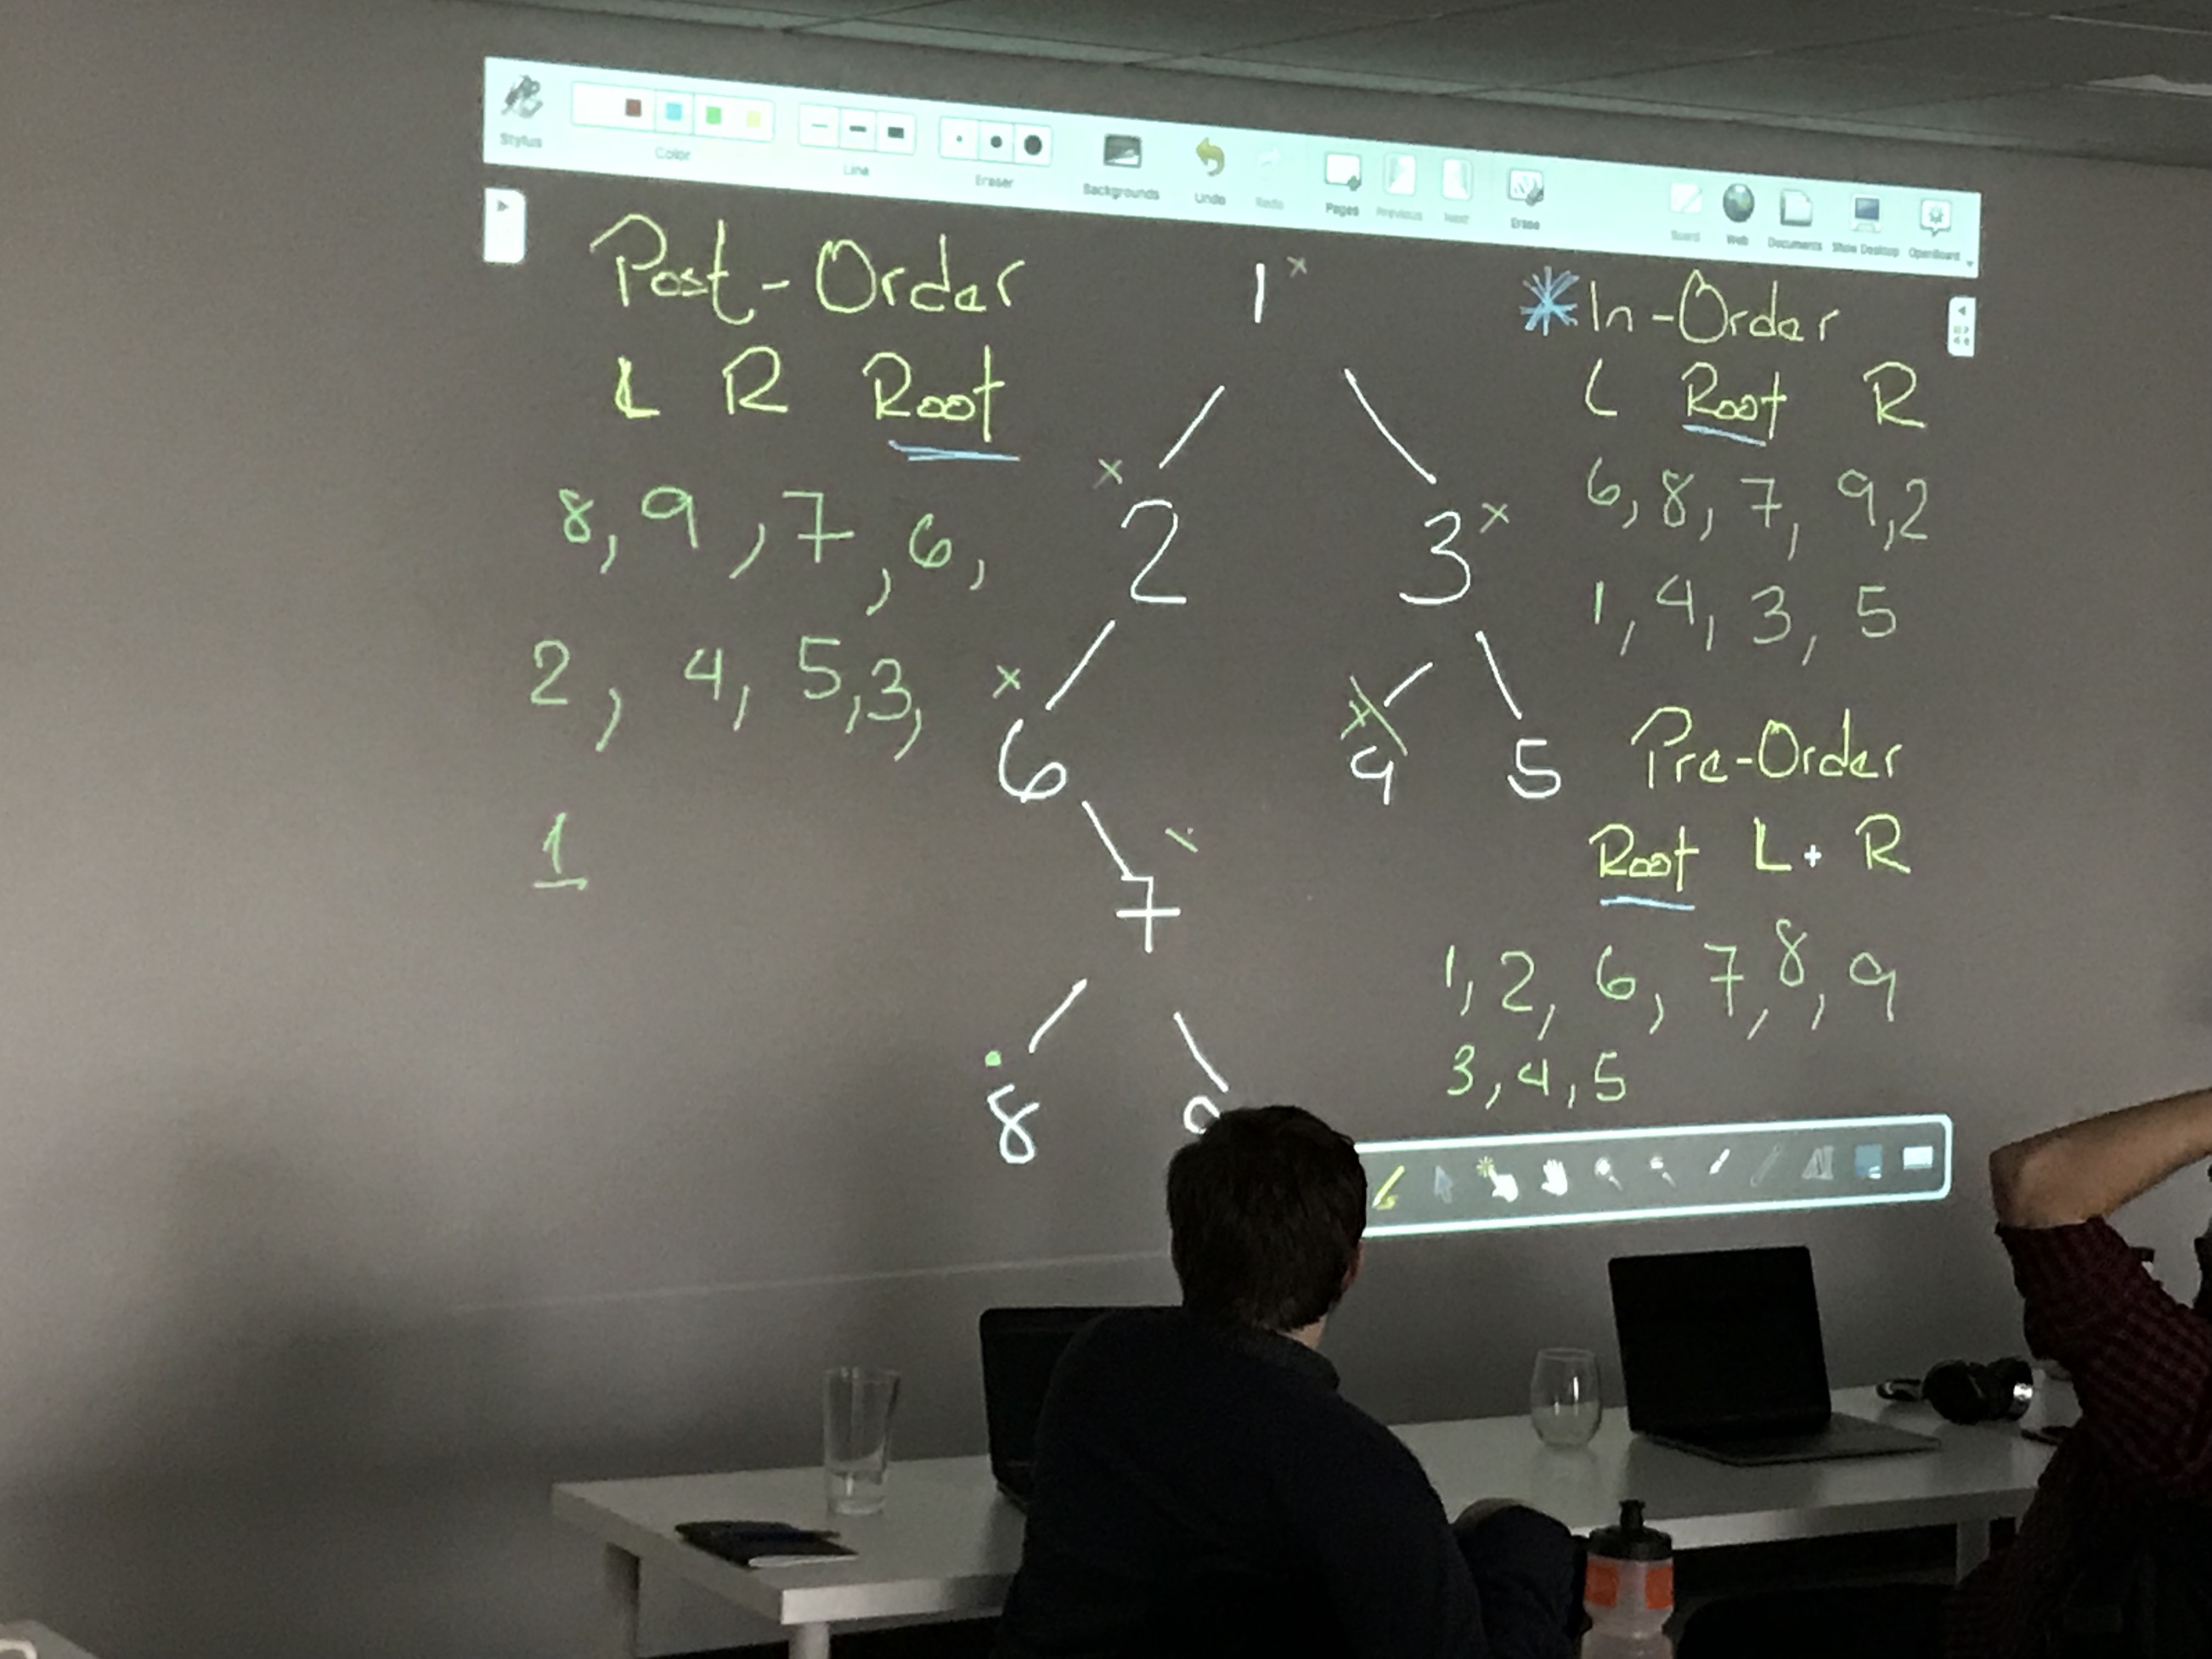 Stylus
Color
Line
Eraser
Backgrounds
Undo
Redo
Pages
Previous
Next
Erase
Board
Web
Documents
Show Desktop
OpenBoard
Post-Order
L R Root
8, 9, 7, 6,
2, 4, 5, 3,
1
1
2 3
6 4 5
7
8 9
In-Order
L Root R
6, 8, 7, 9, 2
1, 4, 3, 5
Pre-Order
Root L + R
1, 2, 6, 7, 8, 9
3, 4, 5